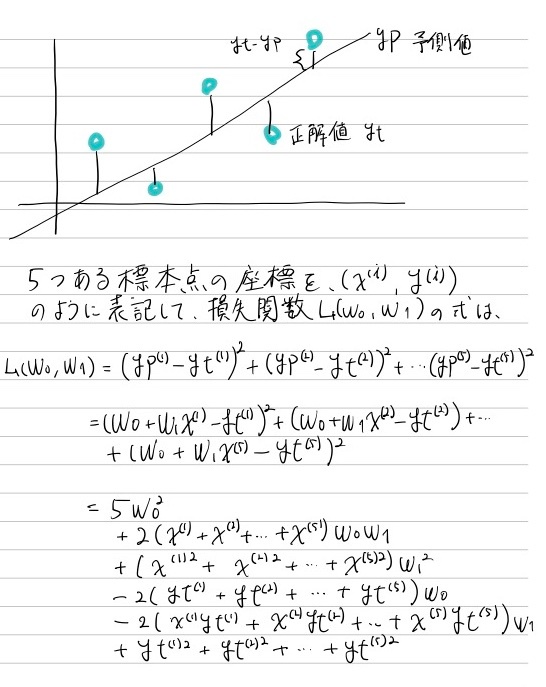 yt-yp
yp 予測値
正解値 yt
5つある標本点の座標を、(x⁽ⁱ⁾, y⁽ⁱ⁾)
のように表記して、損失関数 L(w0, w1) の式は、
L(w0, w1) = (yp⁽¹⁾-yt⁽¹⁾)² + (yp⁽²⁾-yt⁽²⁾)² + ‥(yp⁽⁵⁾-yt⁽⁵⁾)²
=(w0+w1x⁽¹⁾-yt⁽¹⁾)² + (w0+w1x⁽²⁾-yt⁽²⁾)+‥
+ (w0 + w1x⁽⁵⁾ - yt⁽⁵⁾)²
= 5w0²
+ 2(x⁽¹⁾+x⁽²⁾+‥+x⁽⁵⁾)w0w1
+ (x⁽¹⁾² + x⁽²⁾² + ‥ + x⁽⁵⁾²)w1²
- 2(yt⁽¹⁾ + yt⁽²⁾ + ‥ + yt⁽⁵⁾)w0
- 2(x⁽¹⁾yt⁽¹⁾ + x⁽²⁾yt⁽²⁾ + ‥ + x⁽⁵⁾yt⁽⁵⁾)w1
+ yt⁽¹⁾² + yt⁽²⁾² + ‥ + yt⁽⁵⁾²